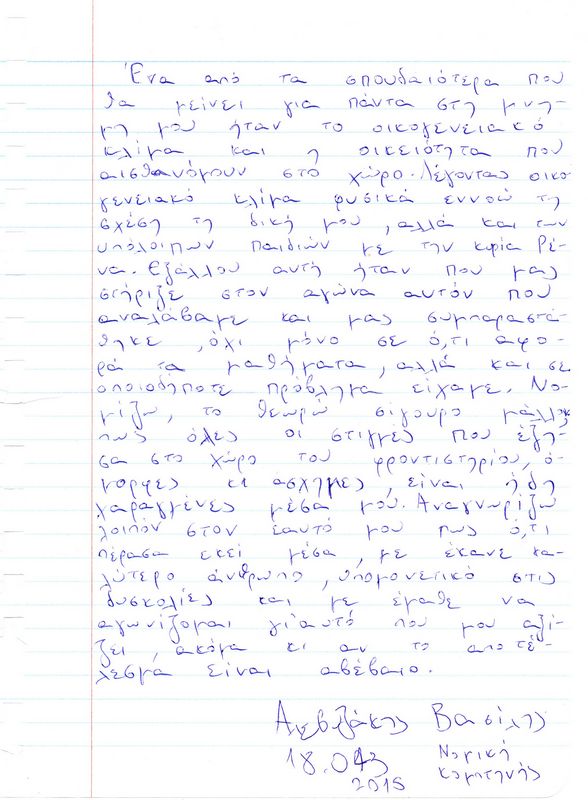 Ένα από τα σπουδαιότερα που
θα μείνει για πάντα στη μνή-
μη μου ήταν το οικογενειακό
κλίμα και η οικειότητα που
αισθανόμουν στο χώρο. Λέγοντας οικο
γενειακό κλίμα φυσικά εννοώ τη
σχέση τη δική μου, αλλά και των
υπόλοιπων παιδιών με την κυρία Ρέ-
να. Εξάλλου αυτή ήταν που μας
στήριζε στον αγώνα αυτόν που
αναλάβαμε και μας συμπαραστά-
θηκε, όχι μόνο σε ό,τι αφο-
ρά τα μαθήματα, αλλά και σε
οποιοδήποτε πρόβλημα είχαμε. Νο-
μίζω, το θεωρώ σίγουρο μάλλον
πως όλες οι στιγμές που έζη-
σα στο χώρο του φροντιστηρίου, ό-
μορφες κι άσχημες, είναι ήδη
χαραγμένες μέσα μου. Αναγνωρίζω
λοιπόν στον εαυτό μου πως ό,τι
πέρασα εκεί μέσα, με έκανε κα-
λύτερο άνθρωπο, υπομονετικό στις
δυσκολίες και με έμαθε να
αγωνίζομαι γι'αυτό που μου αξί-
ζει, ακόμα κι αν το αποτέ-
λεσμα είναι αβέβαιο.
Βασίλης
18.043
2015
Νομική
Κομοτηνής